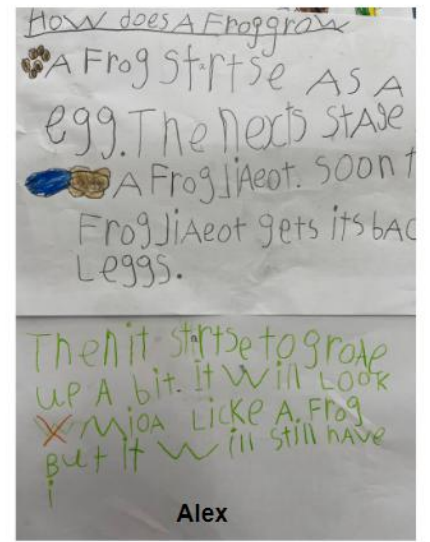 How does A Frog grow
A Frog startse AS A
egg. The nexts stAge
A FrogliAeot. soon t
FrogliAeot gets its bAc
Leggs.
Then it startse to groAe
up A bit. It will Look
MioA Licke A. Frog
But it will still hAve
i
Alex